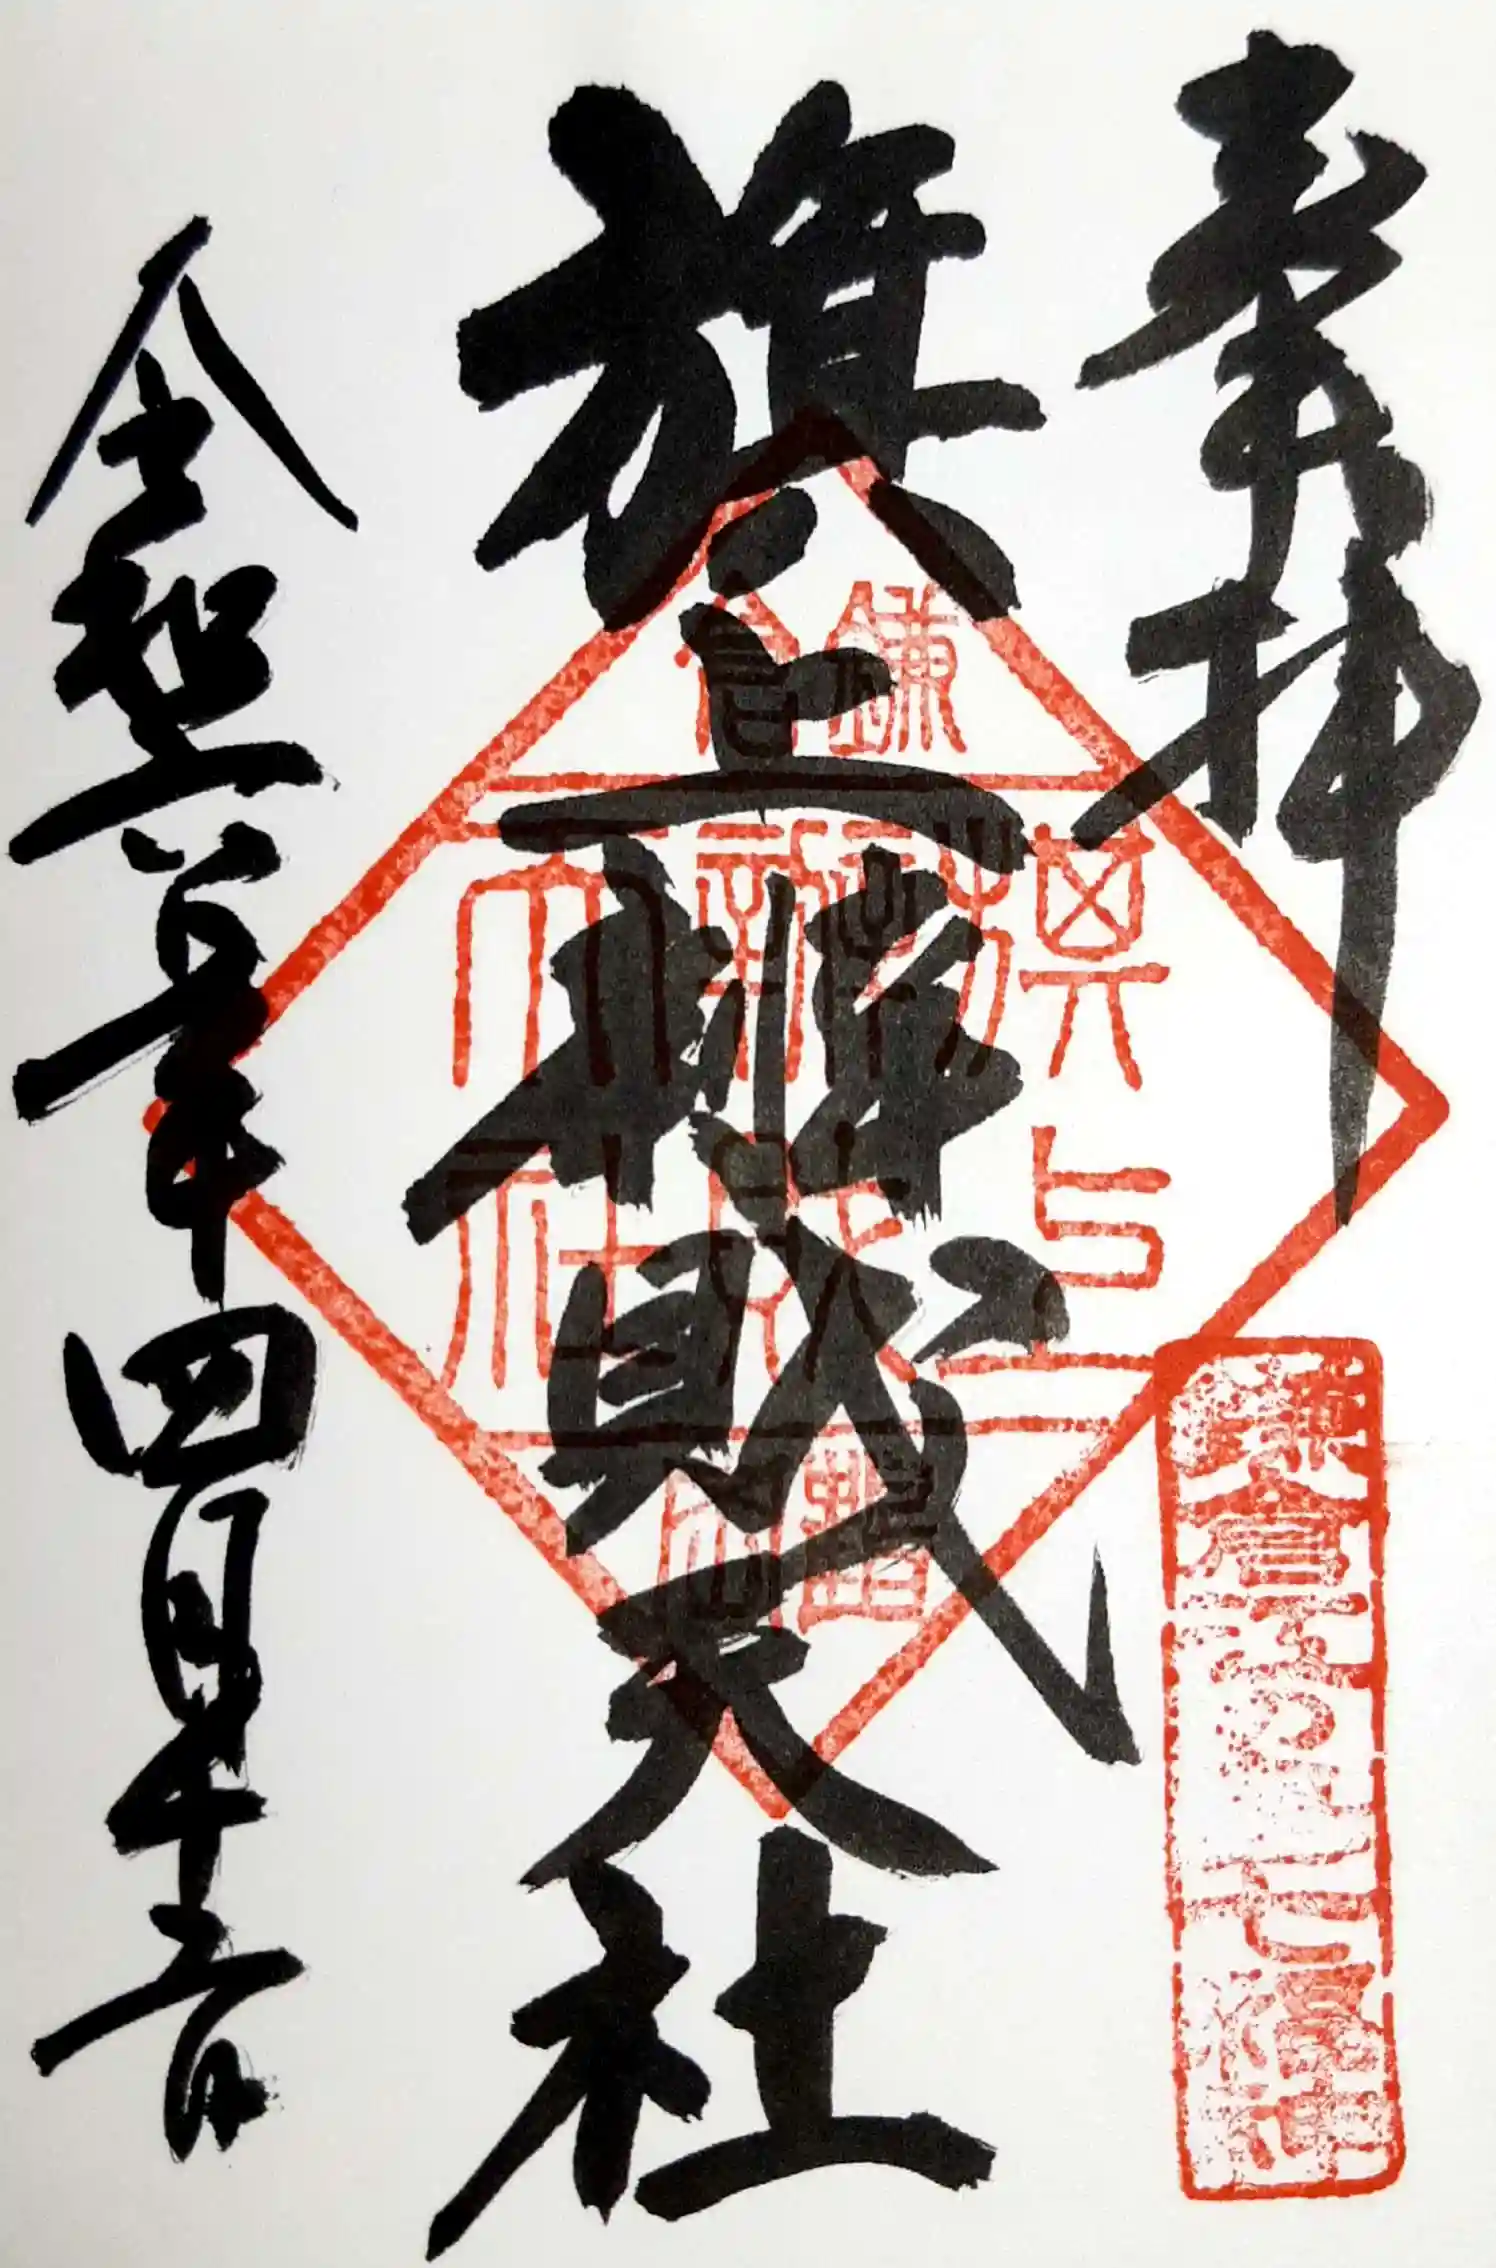 奉拝
鎌倉江ノ島七福神
旗上辨財天社
鎌倉
旗上
令和六年四月十二日